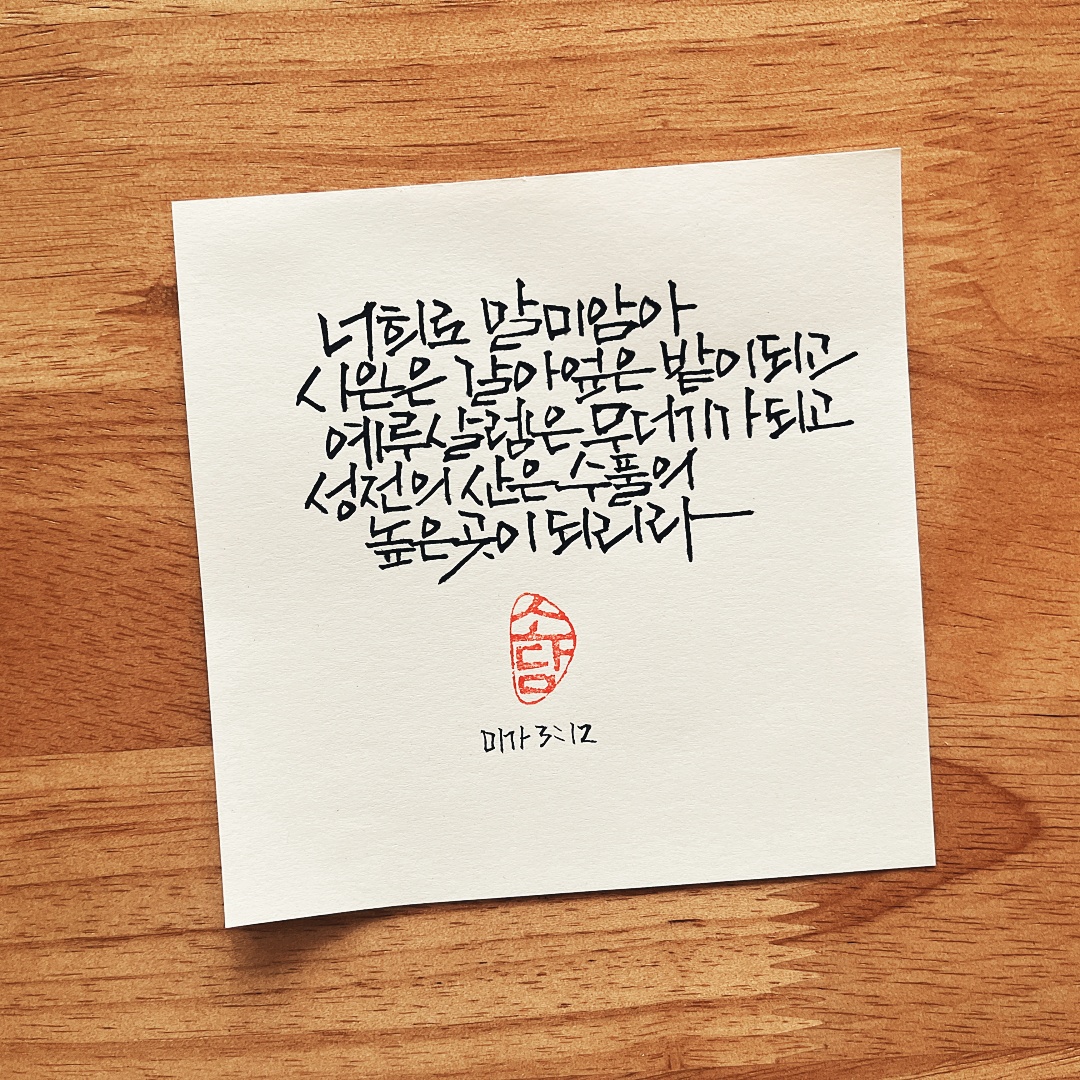 너희로 말미암아
시온은 갈아엎은 밭이 되고
예루살렘은 무더기가 되고
성전의 산은 수풀의
높은 곳이 되리라
소담
미가 3:12